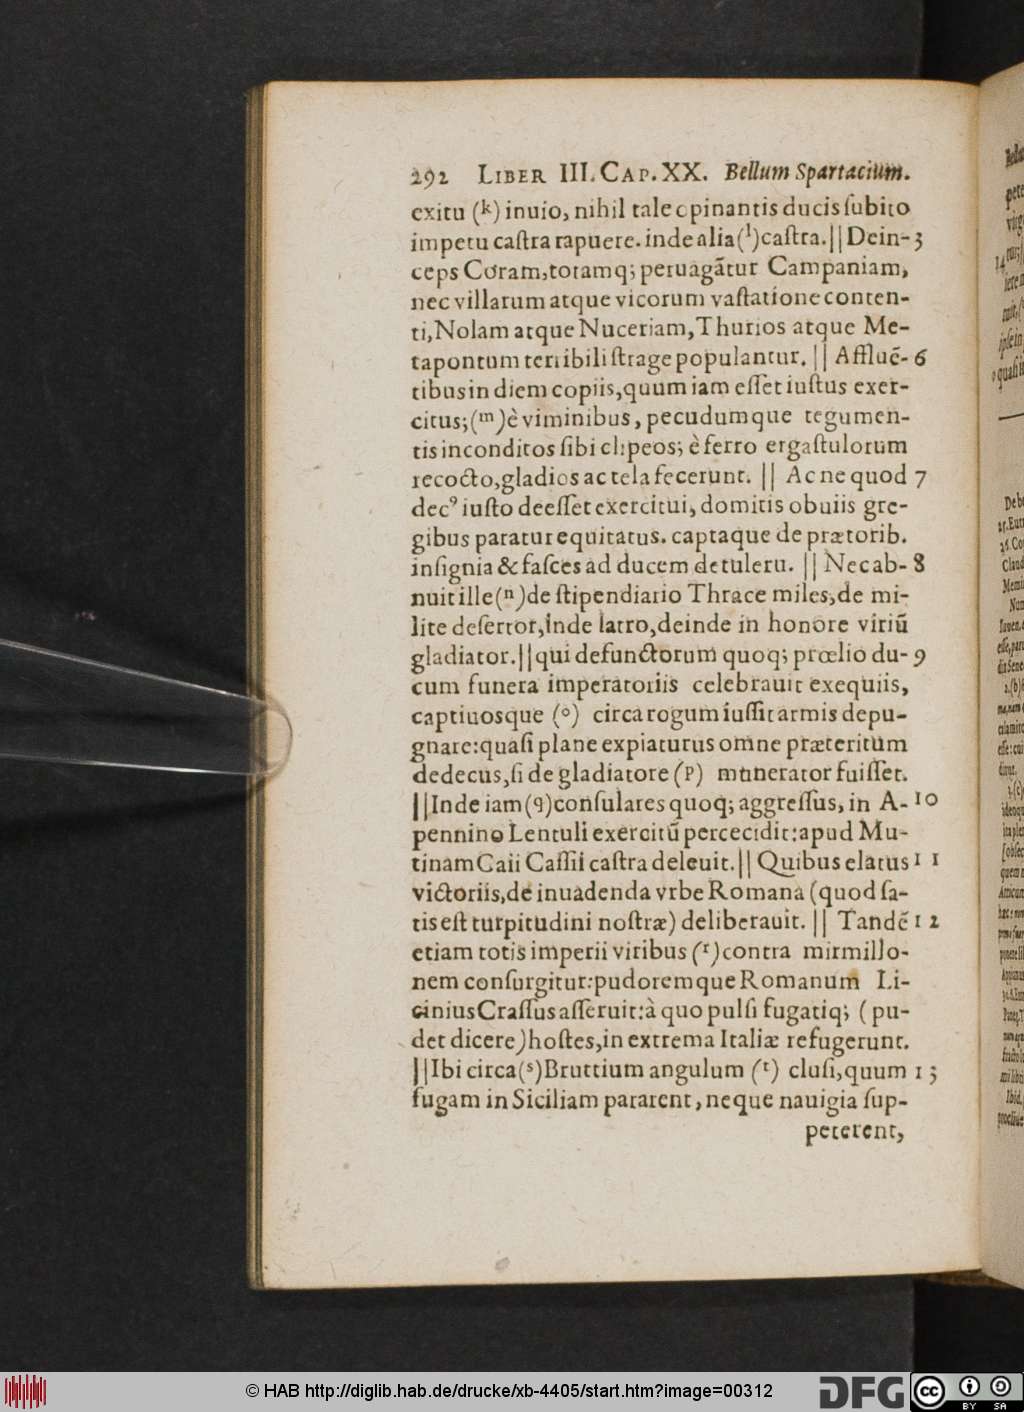 292 LIBER III. CAP. XX. Bellum Spartacium.
exitu (k) inuio, nihil tale opinantis ducis ſubito
impetu caſtra rapuere. inde alia (l) caſtra. || Dein- 3
ceps Coram, totamq; peruagātur Campaniam,
nec villarum atque vicorum vaſtatione conten-
ti, Nolam atque Nuceriam, Thurios atque Me-
tapontum terribili ſtrage populantur. || Affluē- 6
tibus in diem copiis, quum iam eſſet iuſtus exer-
citus; (m) è viminibus, pecudumque tegumen-
tis inconditos ſibi clipeos; è ferro ergaſtulorum
recocto, gladios ac tela fecerunt. || Ac ne quod 7
decꝰ iuſto deeſſet exercitui, domitis obuiis gre-
gibus paratur equitatus. captaque de prætorib.
inſignia & faſces ad ducem detuleru. || Nec ab- 8
nuit ille (n) de ſtipendiario Thrace miles, de mi-
lite deſertor, inde latro, deinde in honore viriū
gladiator. || qui defunctorum quoq; prœlio du- 9
cum funera imperatoriis celebrauit exequiis,
captiuosque (o) circa rogum iuſſit armis depu-
gnare: quaſi plane expiaturus omne præteritum
dedecus, ſi de gladiatore (p) munerator fuiſſet.
|| Inde iam (q) conſulares quoq; aggreſſus, in A- 10
pennino Lentuli exercitū percecidit: apud Mu-
tinam Caii Caſſii caſtra deleuit. || Quibus elatus 11
victoriis, de inuadenda vrbe Romana (quod ſa-
tis eſt turpitudini noſtræ) deliberauit. || Tandē 12
etiam totis imperii viribus (r) contra mirmillo-
nem conſurgitur: pudoremque Romanum Li-
cinius Craſſus aſſeruit: à quo pulſi fugatiq; (pu-
det dicere) hoſtes, in extrema Italiæ refugerunt.
|| Ibi circa (s) Bruttium angulum (t) cluſi, quum 13
fugam in Siciliam pararent, neque nauigia ſup-
peterent,
© HAB http://diglib.hab.de/drucke/xb-4405/start.htm?image=00312
DFG
cc BY SA